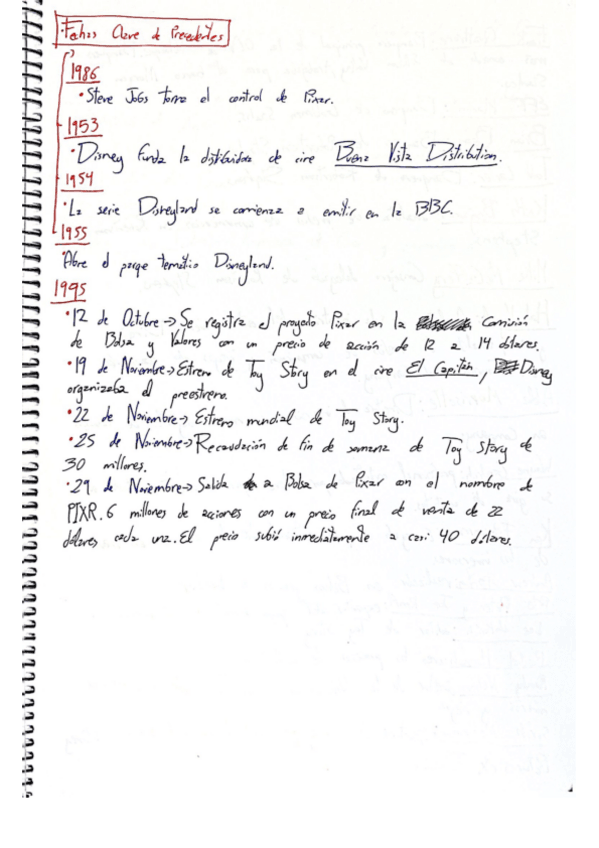 ·Fechas Clave de Precedentes
1986
·Steve Jobs toma el control de Pixar.
1953
·Disney funda la distribuidora de cine Buena Vista Distribution.
1954
·La serie Disneyland se comienza a emitir en la BBC.
1955
·Abre el parque temático Disneyland.
1995
·12 de Octubre→Se registra el proyecto Pixar en la Comisión
de Bolsa y Valores con un precio de acción de 12 a 14 dólares.
·19 de Noviembre→Estreno de Toy Story en el cine El Capitán, Disney
organizaba el preestreno.
·22 de Noviembre→Estreno mundial de Toy Story.
·25 de Noviembre→Recaudación de fin de semana de Toy Story de
30 millones.
·29 de Noviembre→Salida a Bolsa de Pixar con el nombre de
PIXR. 6 millones de acciones con un precio final de venta de 22
dólares cada una. El precio subió inmediatamente a casi 40 dólares.